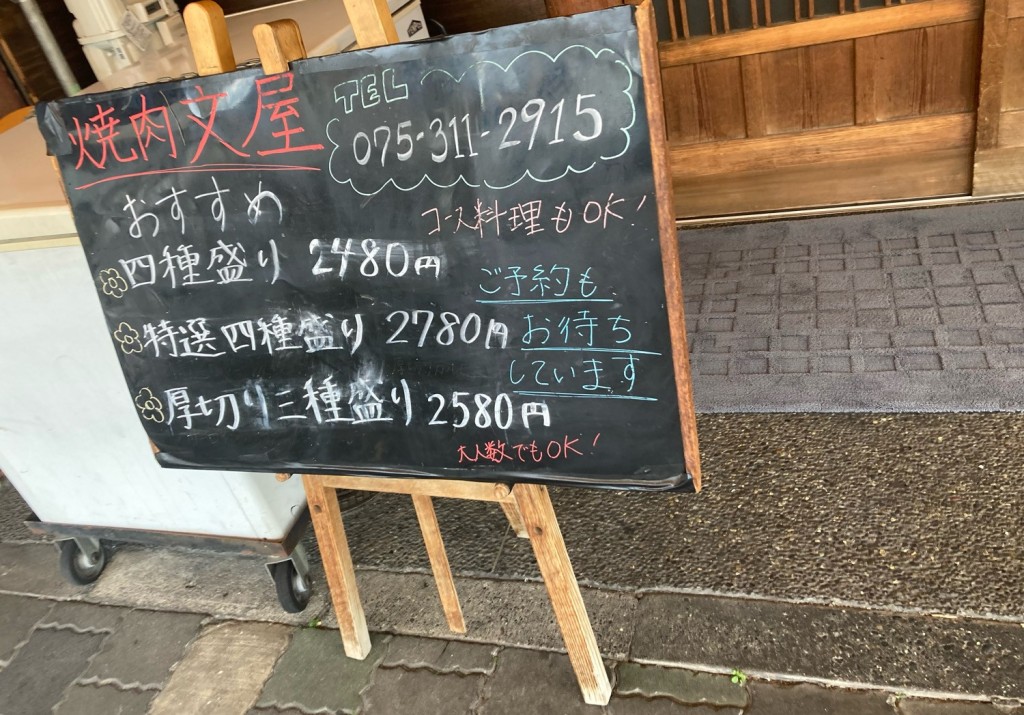 焼肉文屋
TEL
075-311-2915
おすすめ
コース料理もOK!
四種盛り 2480円
ご予約も
特選四種盛り 2780円
お待ち
しています
厚切り三種盛り 2580円
大人数でもOK!